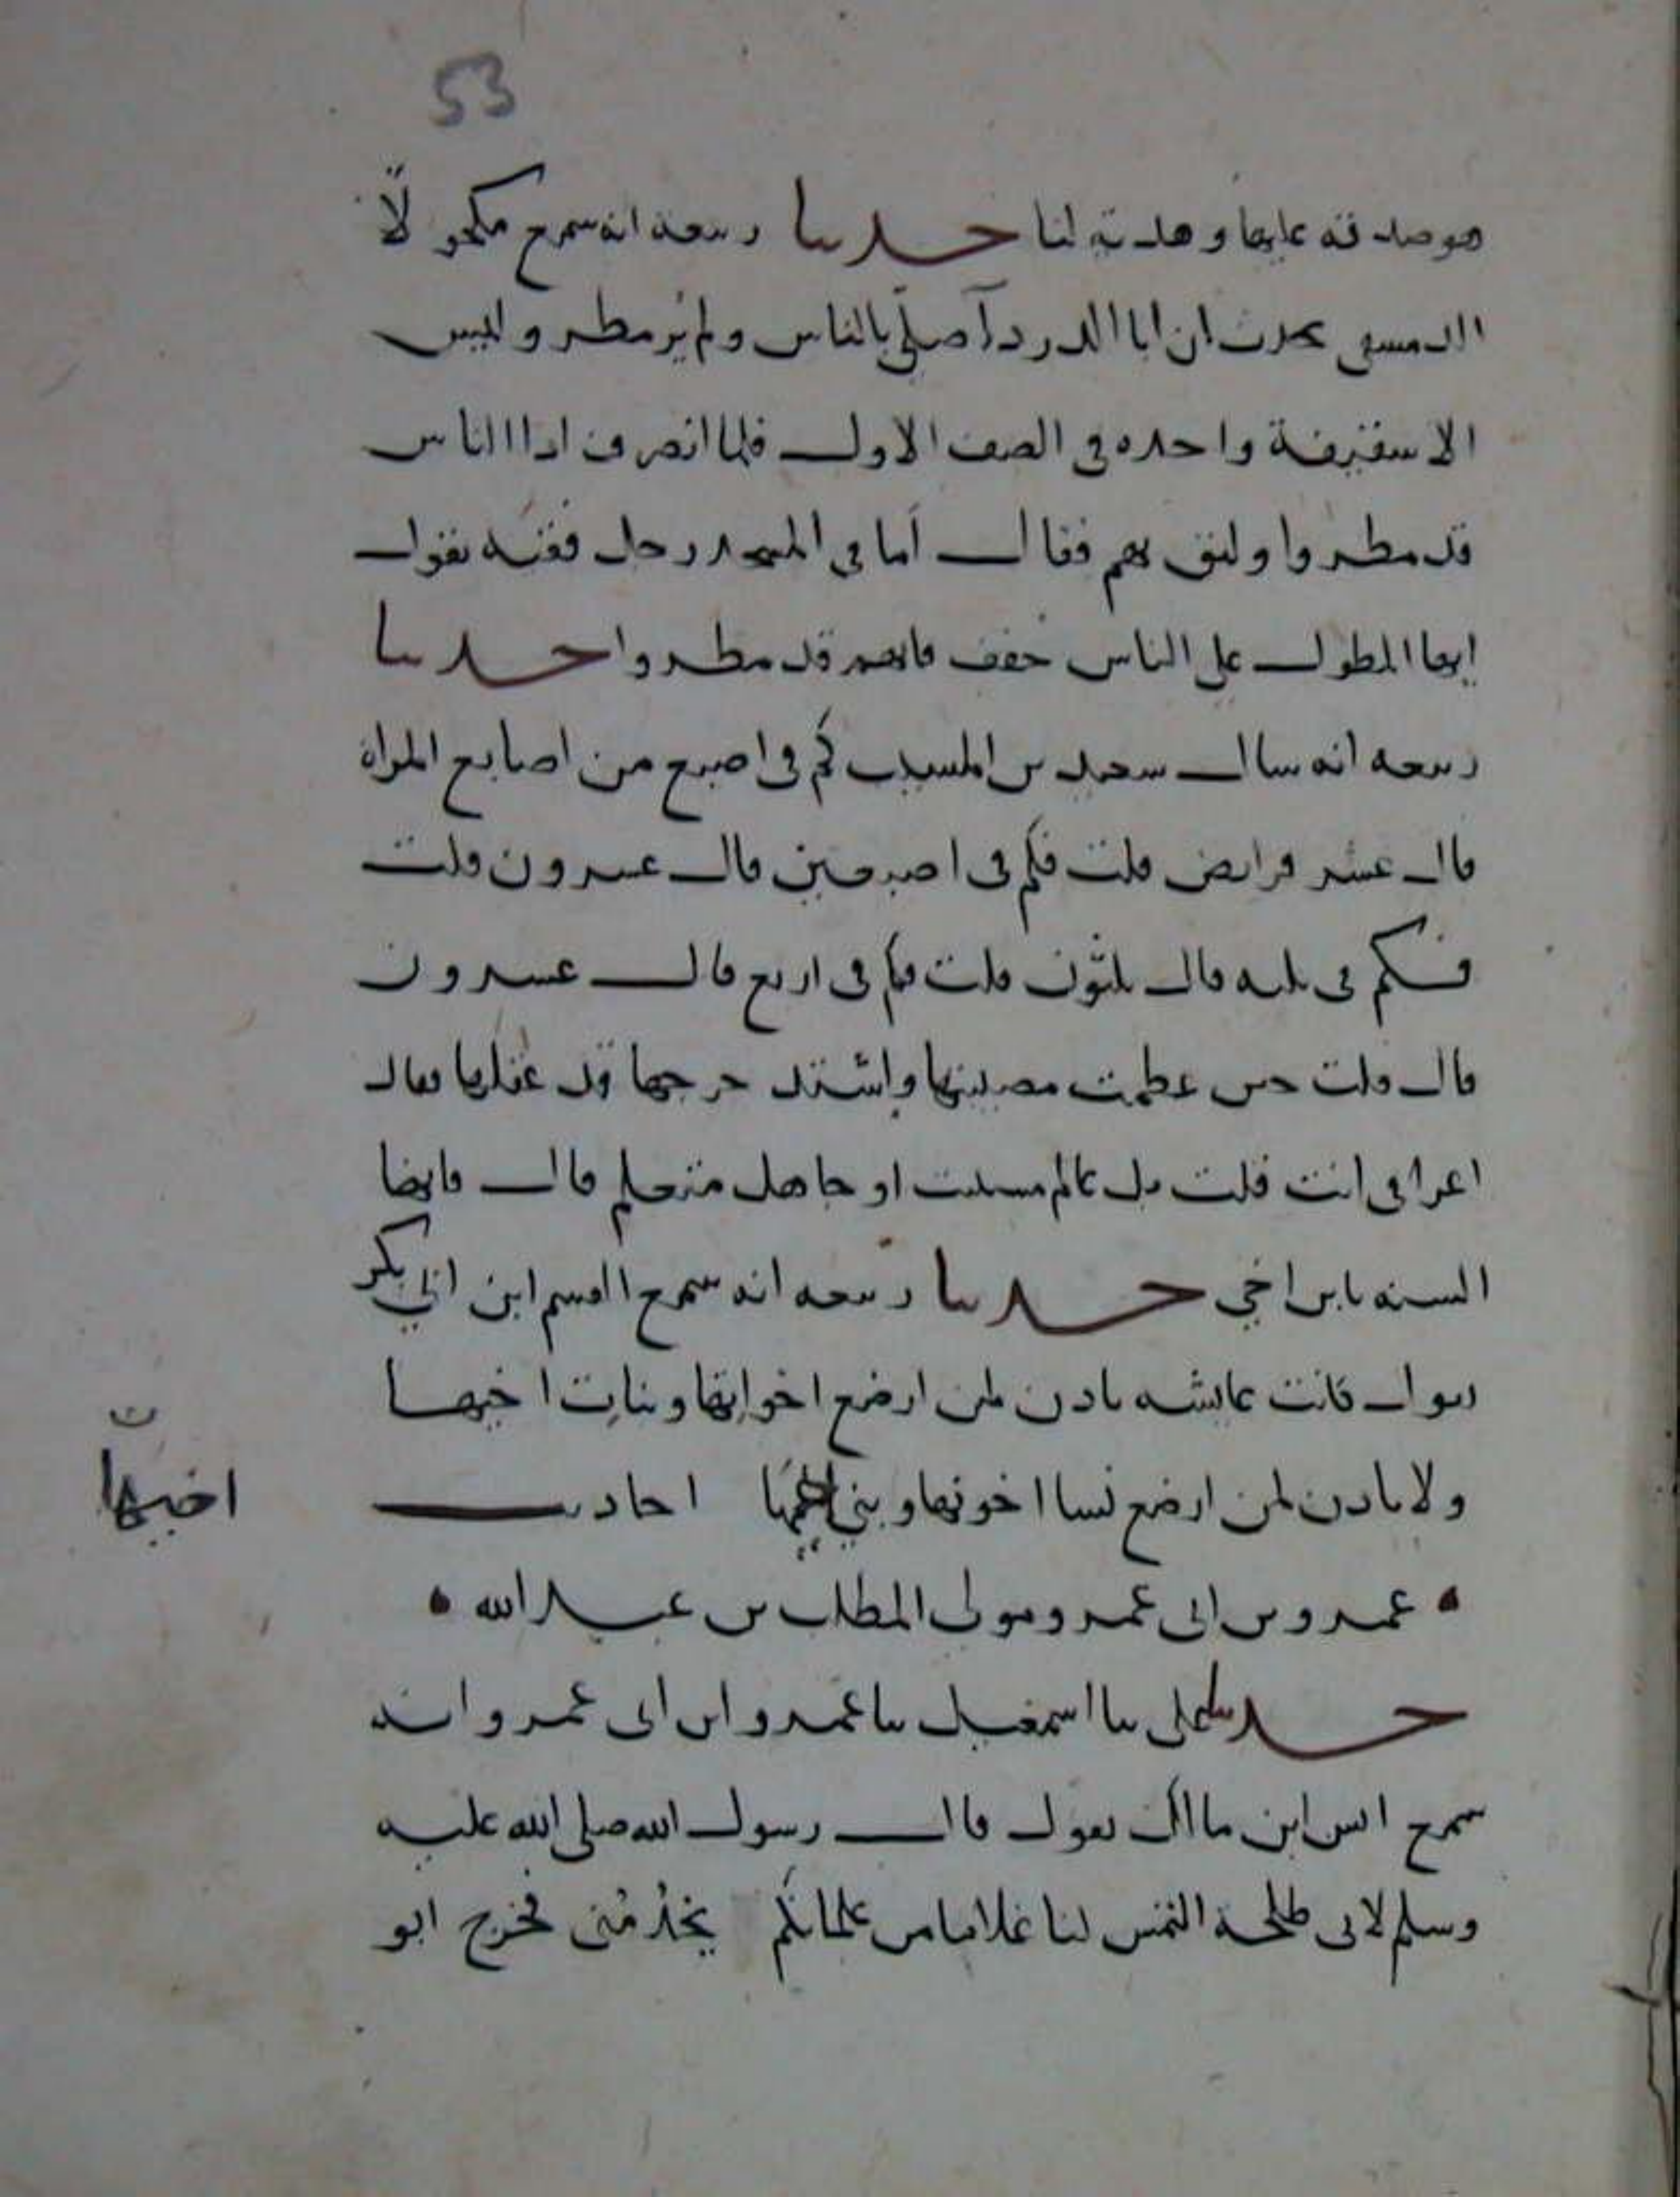 53
هو صدقة عليها وهدية لنا حدثنا ربيعة انه سمع مكحولا
الدمشقي يحدث ان ابا الدرداء صلى بالناس ولم يُر مطر وليس
الا سقيفة واحده في الصف الاول فلما انصرف اذا الناس
قد مطروا ولثق بهم فقال أما في المسجد رجل فقيه يقول
ايها المطول على الناس خفف فانهم قد مطروا حدثنا
ربيعه انه سال سعيد بن المسيب كم في اصبع من اصابع المراة
قال عشر فرايض قلت فكم في اصبعين قال عشرون قلت
فكم في ثلثه قال ثلثون قلت فكم في اربع قال عشرون
قال قلت حين عظمت مصيبتها واشتد جرحها قل عقلها فقال
اعرابي انت قلت بل عالم متثبت او جاهل متعلم قال فانها
السنه يابن اخي حدثنا ربيعه انه سمع القسم ابن ابي بكر
يقول كانت عايشه تاذن لمن ارضع اخواتها وبنات اخيها
ولا تاذن لمن ارضع نسا اخوتها وبني احاديث
اختها
• عمرو بن ابي عمرو مولى المطلب بن عبد الله •
حدثنا علي ثنا اسمعيل ثنا عمرو ابن ابي عمرو انه
سمع انس ابن مالك يقول قال رسول الله صلى الله عليه
وسلم لابي طلحة التمس لنا غلاما من غلمانكم يخدُمُني فخرج ابو